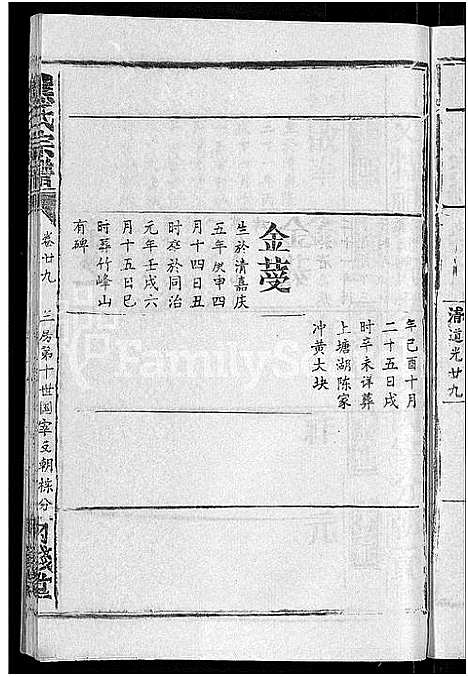 清道光廿九
年己酉十月
二十五日戌
時卒未详葬
上塘湖陈家
冲黄大块
金荽
生於清嘉庆
五年庚申四
月十四日丑
时卒於同治
元年壬戌六
月十五日巳
时葬竹峰山
有碑
氏宗譜
卷廿九
三房第十世國宰支朝棟分